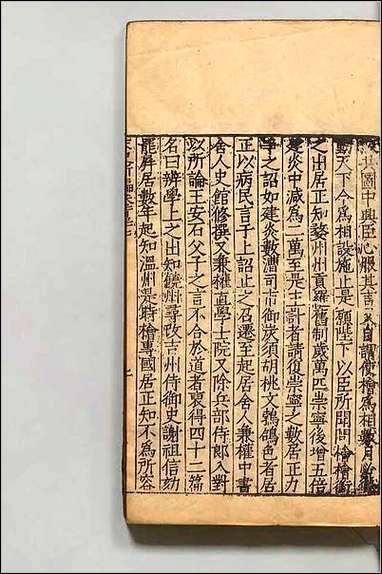 共圖中興臣心服其言又自謂使檜為相數月必聳
動天下今為相設施止是願陛下以臣所聞問檜檜銜
之出居正知婺州州貢羅舊制歲萬匹崇寧後增五倍
建炎中減為二萬至是主計者請復崇寧之數居正力
爭之詔如建炎數漕司市御炭須胡桃文鵓鴿色者居
正以病民言于上詔止之召遷至起居舍人兼權中書
舍人史館修撰又兼權直學士院又除兵部侍郎入對
以所論王安石父子之言不合於道者裒得四十二篇
名曰辨學上之出知饒州尋改吉州侍御史謝祖信劾
罷屏居數年起知溫州是時檜專國居正知不為所容